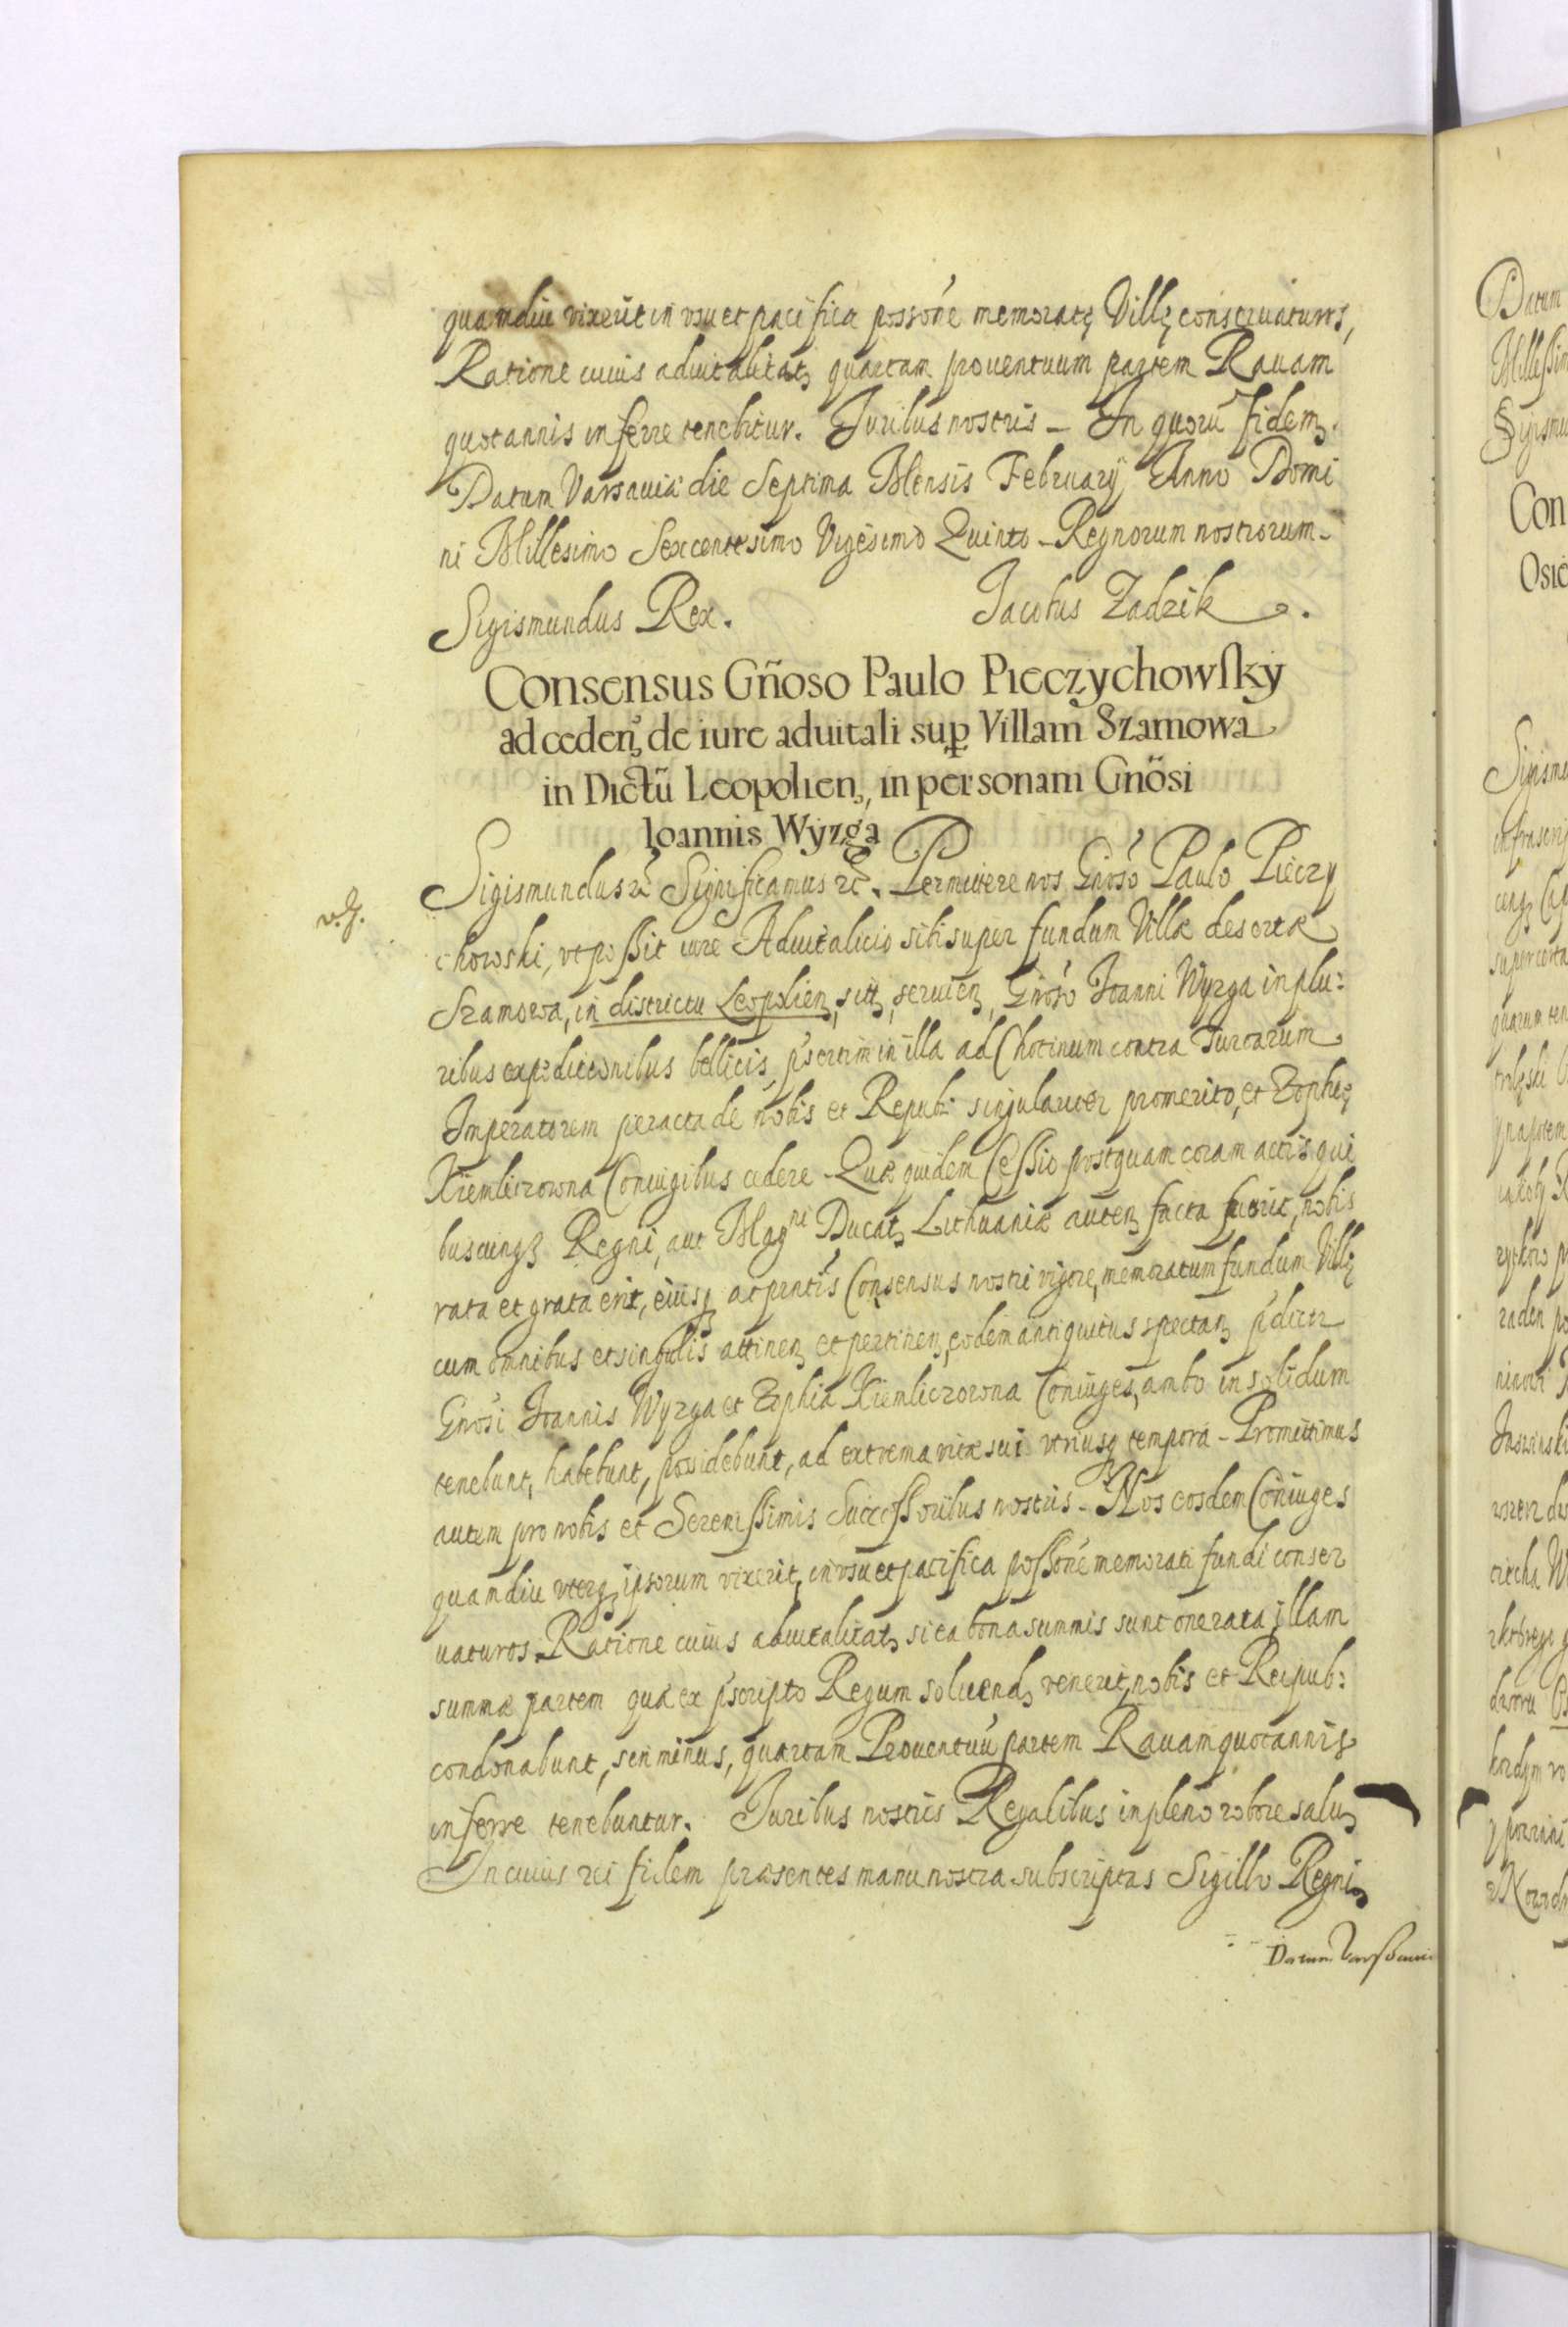 quamdiu vixerit in usu et pacifica possõne memoratę Villę conservaturos,
Ratione cuius advitalitatȝ quartam proventuum partem Ravam
quotannis inferre tenebitur. Iuribus nostris – In quorũ fidemȝ.
Datum Varsaviæ die Septima Mensis February Anno Domi
ni Millesimo Sexcentesimo Vigesimo Quinto – Regnorum nostrorum –
Sigismundus Rex. Jacobus Zadzik
Consensus Gñoso Paulo Pieczychowſky
ad cedenȝ de iure aduitali suꝑ Villam Szamowa
in Dictũ Leopolienȝ, in personam Gnõsi
Ioannis Wyzga
Sigismundus &c Significamus &c. Permittere nos Gnõso Paulo Pieczy
chowski, vt poßit iure Aduitalicio sibi super fundum Villæ desertæ
Szamowa, in districtu Leopolienȝ, sittȝ, seruienȝ, Gnõso Ioanni Wyzga in plu:
ribus expeditionibus bellicis, p̃sertim in illa ad Chotinum contra Turcarum
Imperatorem peracta de nobis et Repub: singulariter promerito, et Zophię
Kiemliczowna Coniugibus cedere – Quæ quidem Ceßio postquam coram actis qui
buscunqȝ Regni, aut Magni Ducatȝ Lithuaniæ autenȝ facta fuerit, nobis
rata et grata erit, eiusqȝ ac pñtis Consensus nostri vigore, memoratum fundum Villę
cum omnibus et singulis attinenȝ et pertinenȝ, eodem antiquitus spectanȝ p̃dicti
Gnõsi Ioannis Wyzga et Zophia Kiemliczowna Coniuges, ambo in solidum
tenebunt, habebunt, possidebunt, ad extrema vitæ sui vtriusqȝ tempora – Promittimus
autem pro nobis et Sereniſſimis Succeſſoribus nostris – Nos eosdem Coniuges
quamdiu vterqȝ ipsorum vixerit, in vsu et pacifica poſſõne memorati fundi conser
vaturos. Ratione cuius advitalitatȝ si ea bona summis sunt onerata illam
summæ partem quæ ex p̃scripto Regum solvendȝ venerit, nobis et Reipub:
condonabunt, sen minus, quartam Proventuũ partem Ravam quotannis
inferre tenebuntur. Iuribus nostris Regalibus in pleno robore salvȝ
In cuius rei fidem præsentes manu nostra subscriptas Sigillo Regni
Datum Varſsaviæ